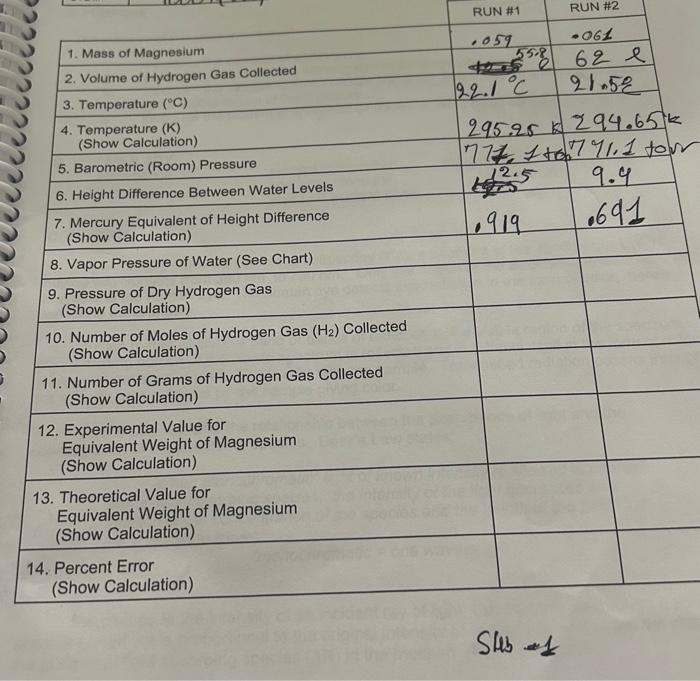 RUN #1 RUN #2
1. Mass of Magnesium .059 .061
2. Volume of Hydrogen Gas Collected 55.8 62 l
3. Temperature (°C) 22.1 °C 21.5
4. Temperature (K) 295.25 k 294.65 k
(Show Calculation)
5. Barometric (Room) Pressure 771.1 771.1 torr
6. Height Difference Between Water Levels 12.5 9.4
7. Mercury Equivalent of Height Difference .919 .691
(Show Calculation)
8. Vapor Pressure of Water (See Chart)
9. Pressure of Dry Hydrogen Gas
(Show Calculation)
10. Number of Moles of Hydrogen Gas (H₂) Collected
(Show Calculation)
11. Number of Grams of Hydrogen Gas Collected
(Show Calculation)
12. Experimental Value for
Equivalent Weight of Magnesium
(Show Calculation)
13. Theoretical Value for
Equivalent Weight of Magnesium
(Show Calculation)
14. Percent Error
(Show Calculation)